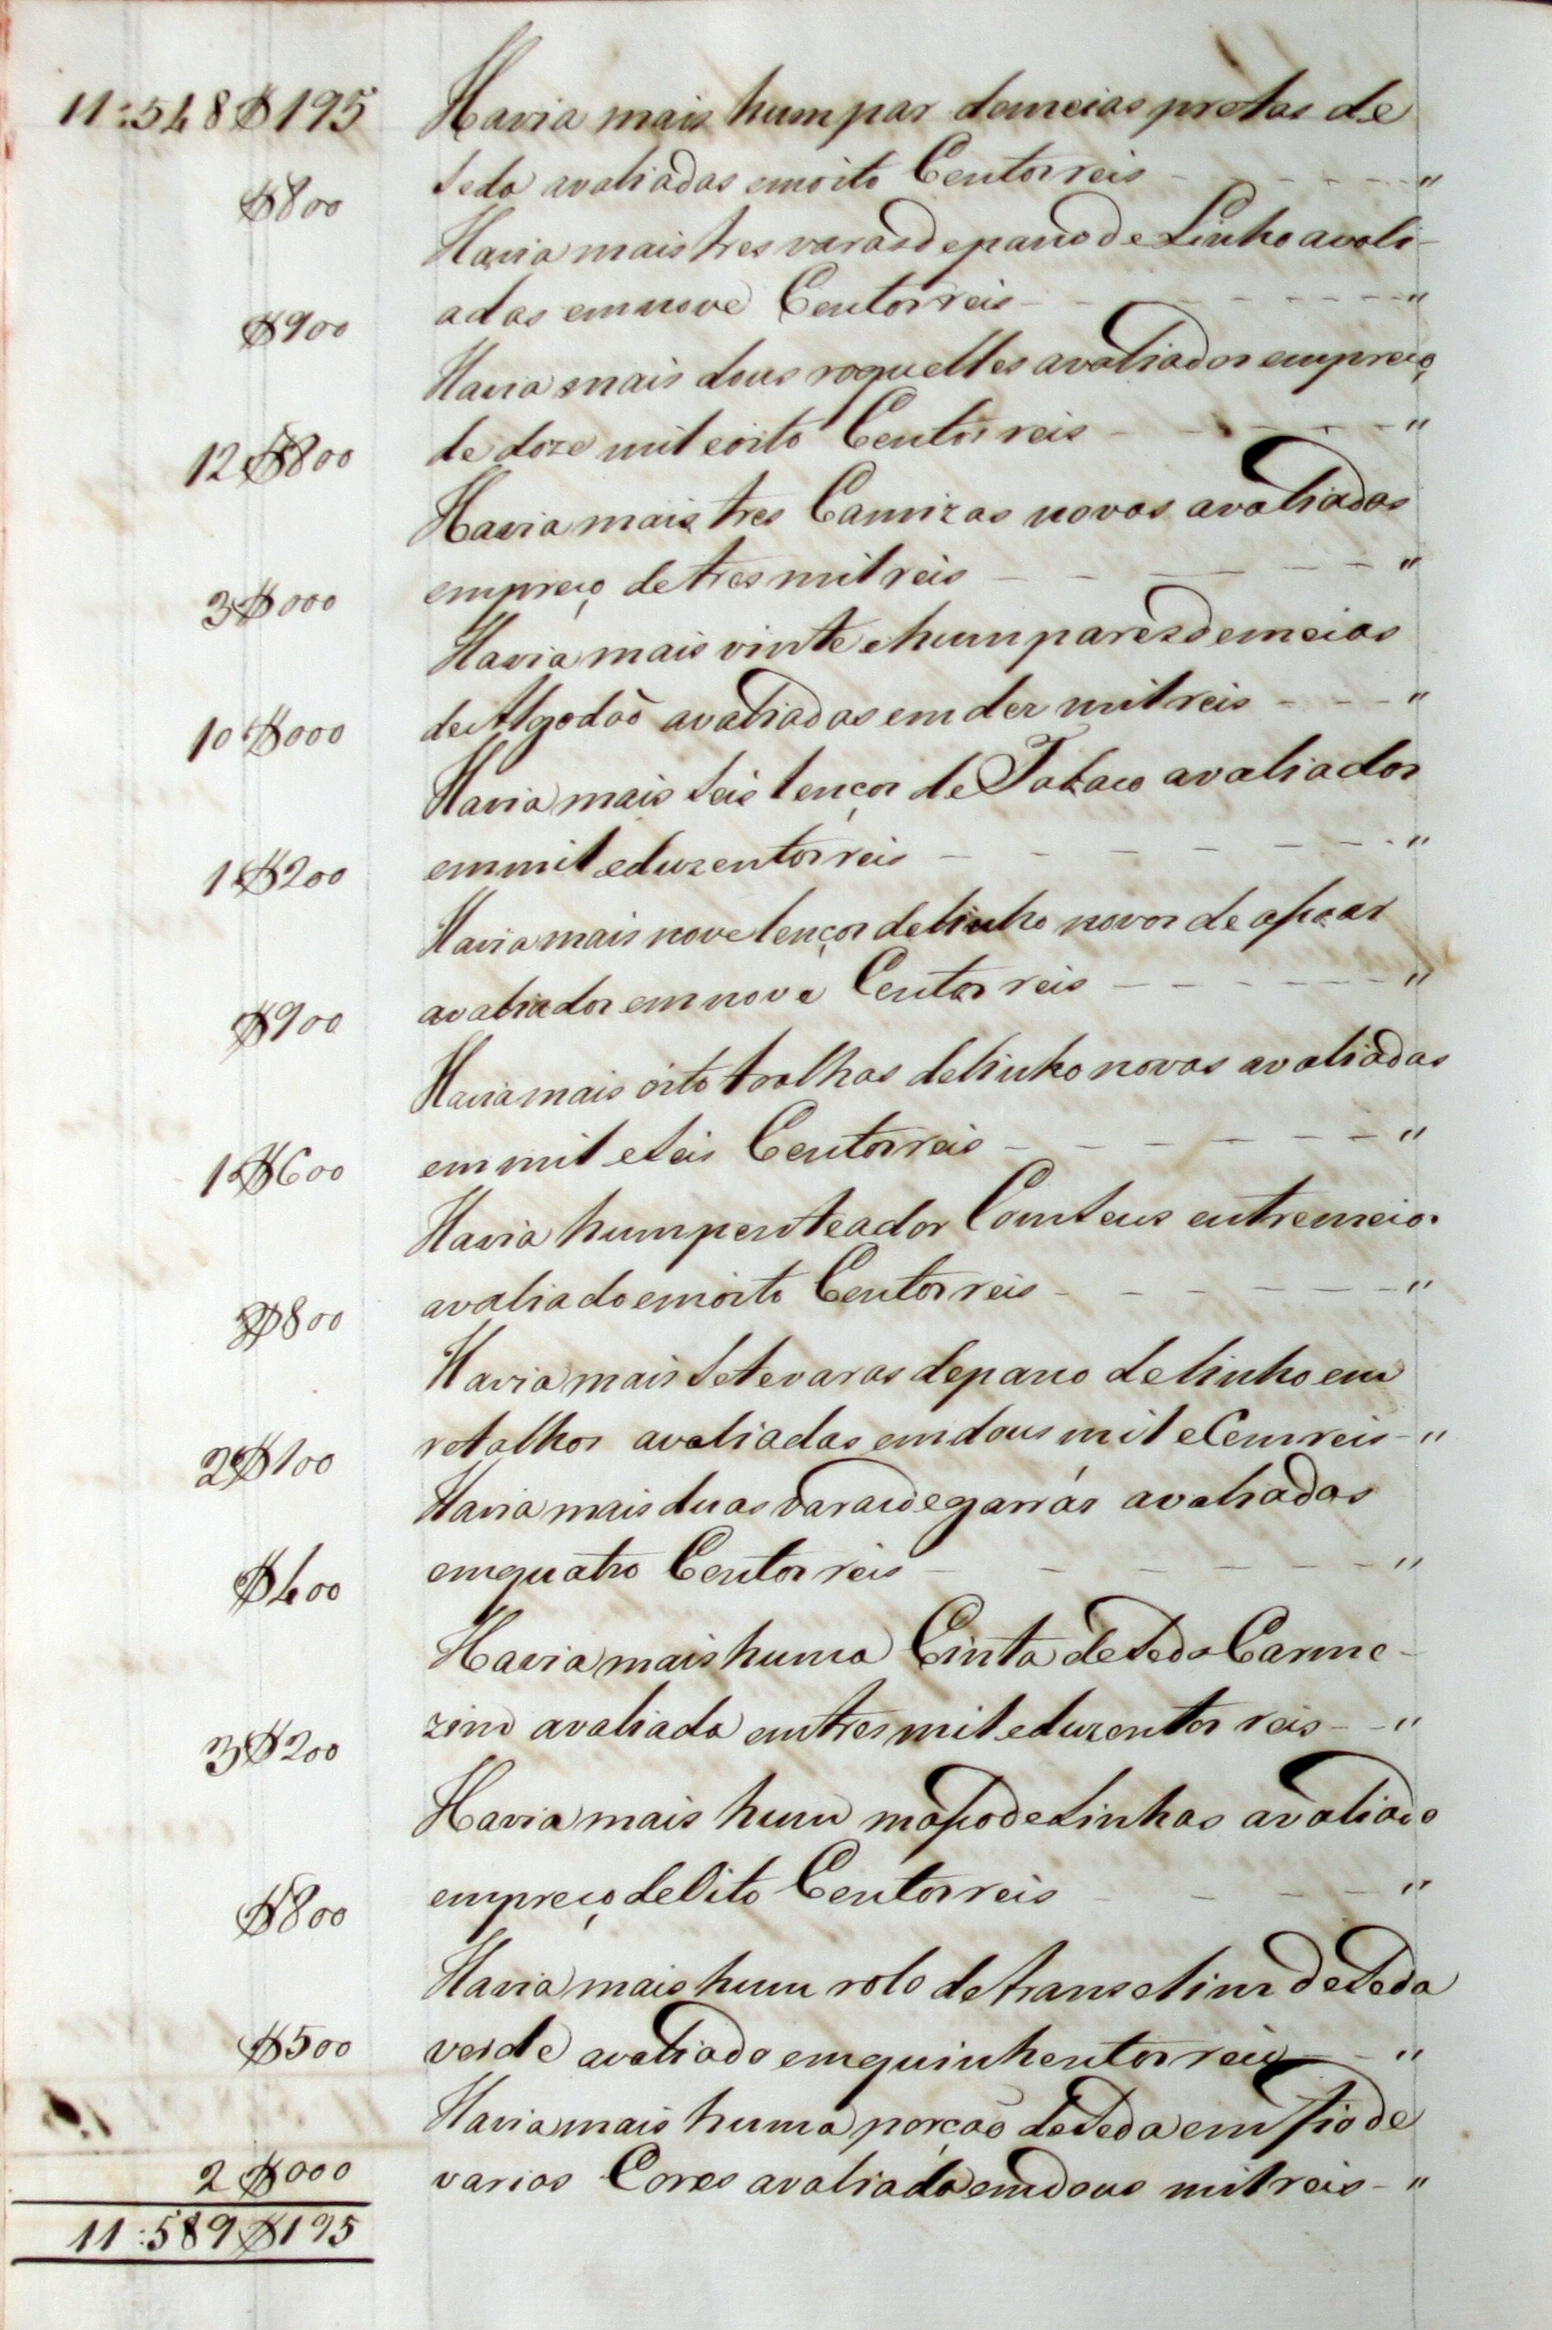 11:548$195 Havia mais hum par de meias pretas de
$800 seda avaliadas em oito Centos reis - - - - - "
Havia mais tres varas de pano de Linho avali-
$900 adas em nove Centos reis - - - - - - - "
Havia mais dous roquettes avaliados em preço
12$800 de doze mil e oito Centos reis - - - - - "
Havia mais tres Camizas novas avaliadas
3$000 em preço de tres mil reis - - - - - - "
Havia mais vinte e hum pares de meias
10$000 de Algodaõ avaliadas em dez mil reis - - - "
Havia mais seis lenços de Tabaco avaliados
1$200 em mil e duzentos reis - - - - - - - "
Havia mais nove lenços de linho novos de assoar
$900 avaliados em nove Centos reis - - - - - - "
Havia mais oito toalhas de linho novas avaliadas
1$600 em mil e seis Centos reis - - - - - - "
Havia hum penteador Com seus entremeios
$800 avaliado em oito Centos reis - - - - - - "
Havia mais sete varas de pano de linho em
retalhos avaliadas em dous mil e Cem reis - "
2$100
Havia mais duas varas de garrás avaliadas
$400 em quatro Centos reis - - - - - - "
Havia mais huma Cinta de seda Carme-
3$200 zim avaliada em tres mil e duzentos reis - - "
Havia mais hum masso de Linhas avaliado
$800 em preço de Oito Centos reis - - - - "
Havia mais hum rolo de transelim de seda
$500 verde avaliado em quinhentos reis - - "
Havia mais huma porçaõ de seda em fio de
2$000 varias Cores avaliada em dous mil reis - "
11:589$195